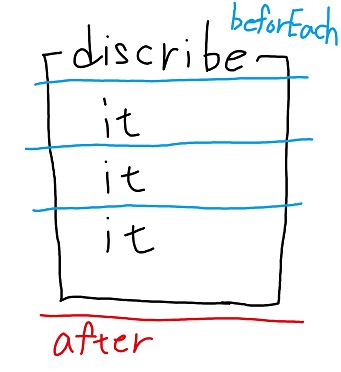 beforEach
discribe
it
it
it
after